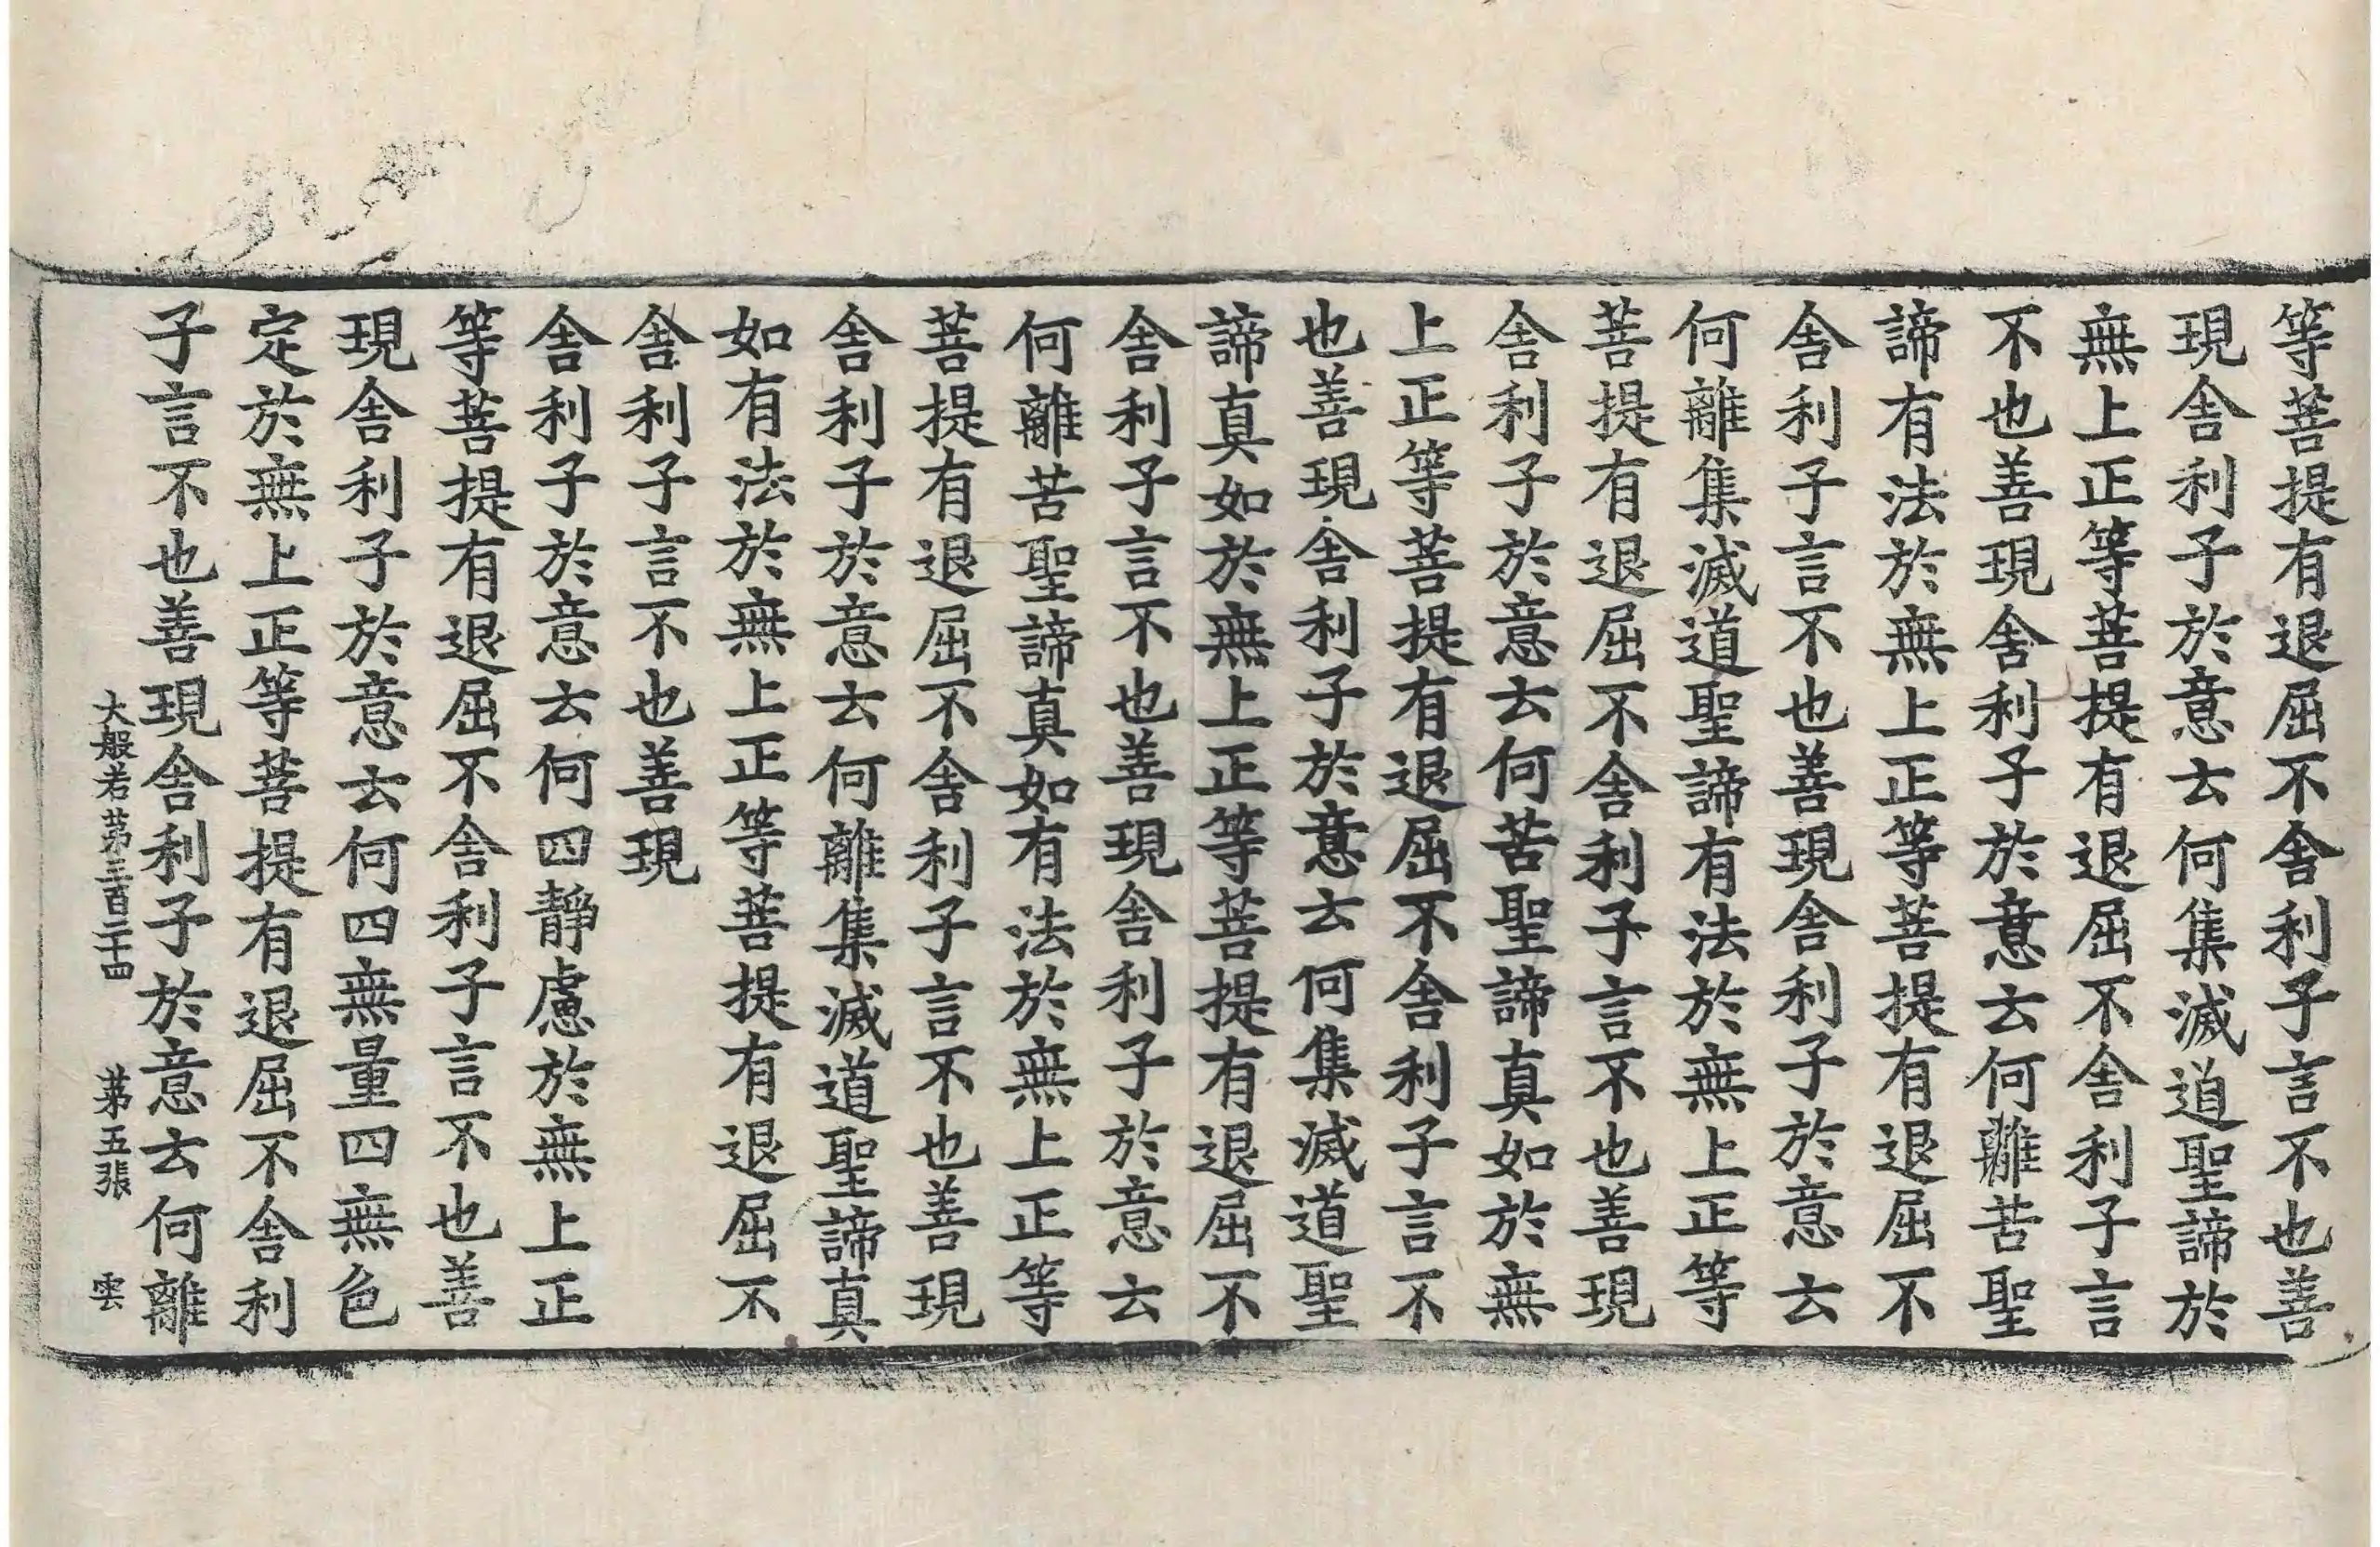 等菩提有退屈不舍利子言不也善
現舍利子於意云何集滅道聖諦於
無上正等菩提有退屈不舍利子言
不也善現舍利子於意云何離苦聖
諦有法於無上正等菩提有退屈不
舍利子言不也善現舍利子於意云
何離集滅道聖諦有法於無上正等
菩提有退屈不舍利子言不也善現
舍利子於意云何苦聖諦真如於無
上正等菩提有退屈不舍利子言不
也善現舍利子於意云何集滅道聖
諦真如於無上正等菩提有退屈不
舍利子言不也善現舍利子於意云
何離苦聖諦真如有法於無上正等
菩提有退屈不舍利子言不也善現
舍利子於意云何離集滅道聖諦真
如有法於無上正等菩提有退屈不
舍利子言不也善現
舍利子於意云何四靜慮於無上正
等菩提有退屈不舍利子言不也善
現舍利子於意云何四無量四無色
定於無上正等菩提有退屈不舍利
子言不也善現舍利子於意云何離
大般若第三百二十四 第五張 雲